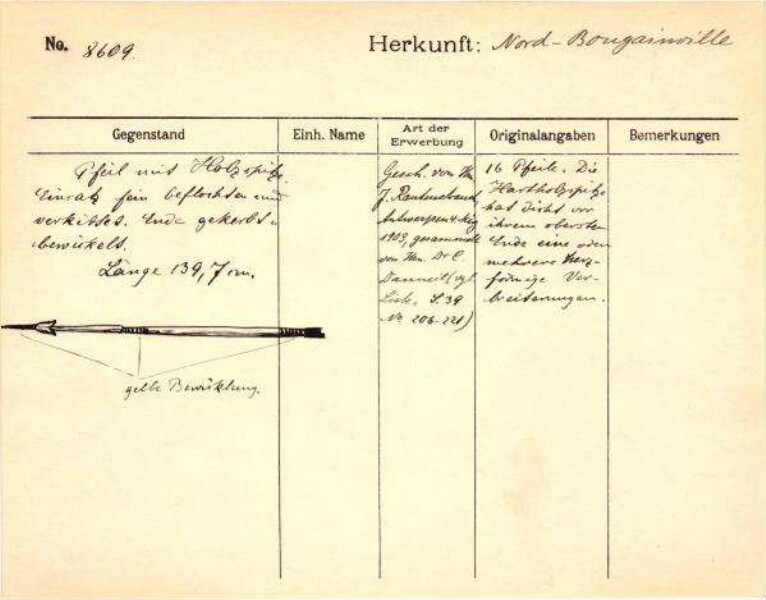 No. 8609.
Herkunft: Nord-Bougainville
Gegenstand
Einh. Name
Art der Erwerbung
Originalangaben
Bemerkungen
Pfeil mit Holzspitze.
Einsatz fein beflochten und
verkittet. Ende gekerbt u.
bewickelt.
Länge 139,7 cm.
gelbe Bewicklung.
Gesch. von Hn
J. Rautenstrauch
Antwerpen
1903, gesammelt
von Hn. Dr C.
Danneil (vgl.
Liste. S. 39
No 206-221)
16 Pfeile. Die
Hartholzspitze
hat dicht vor
ihrem obersten
Ende eine oder
mehrere herz-
förmige Ver-
breiterungen.